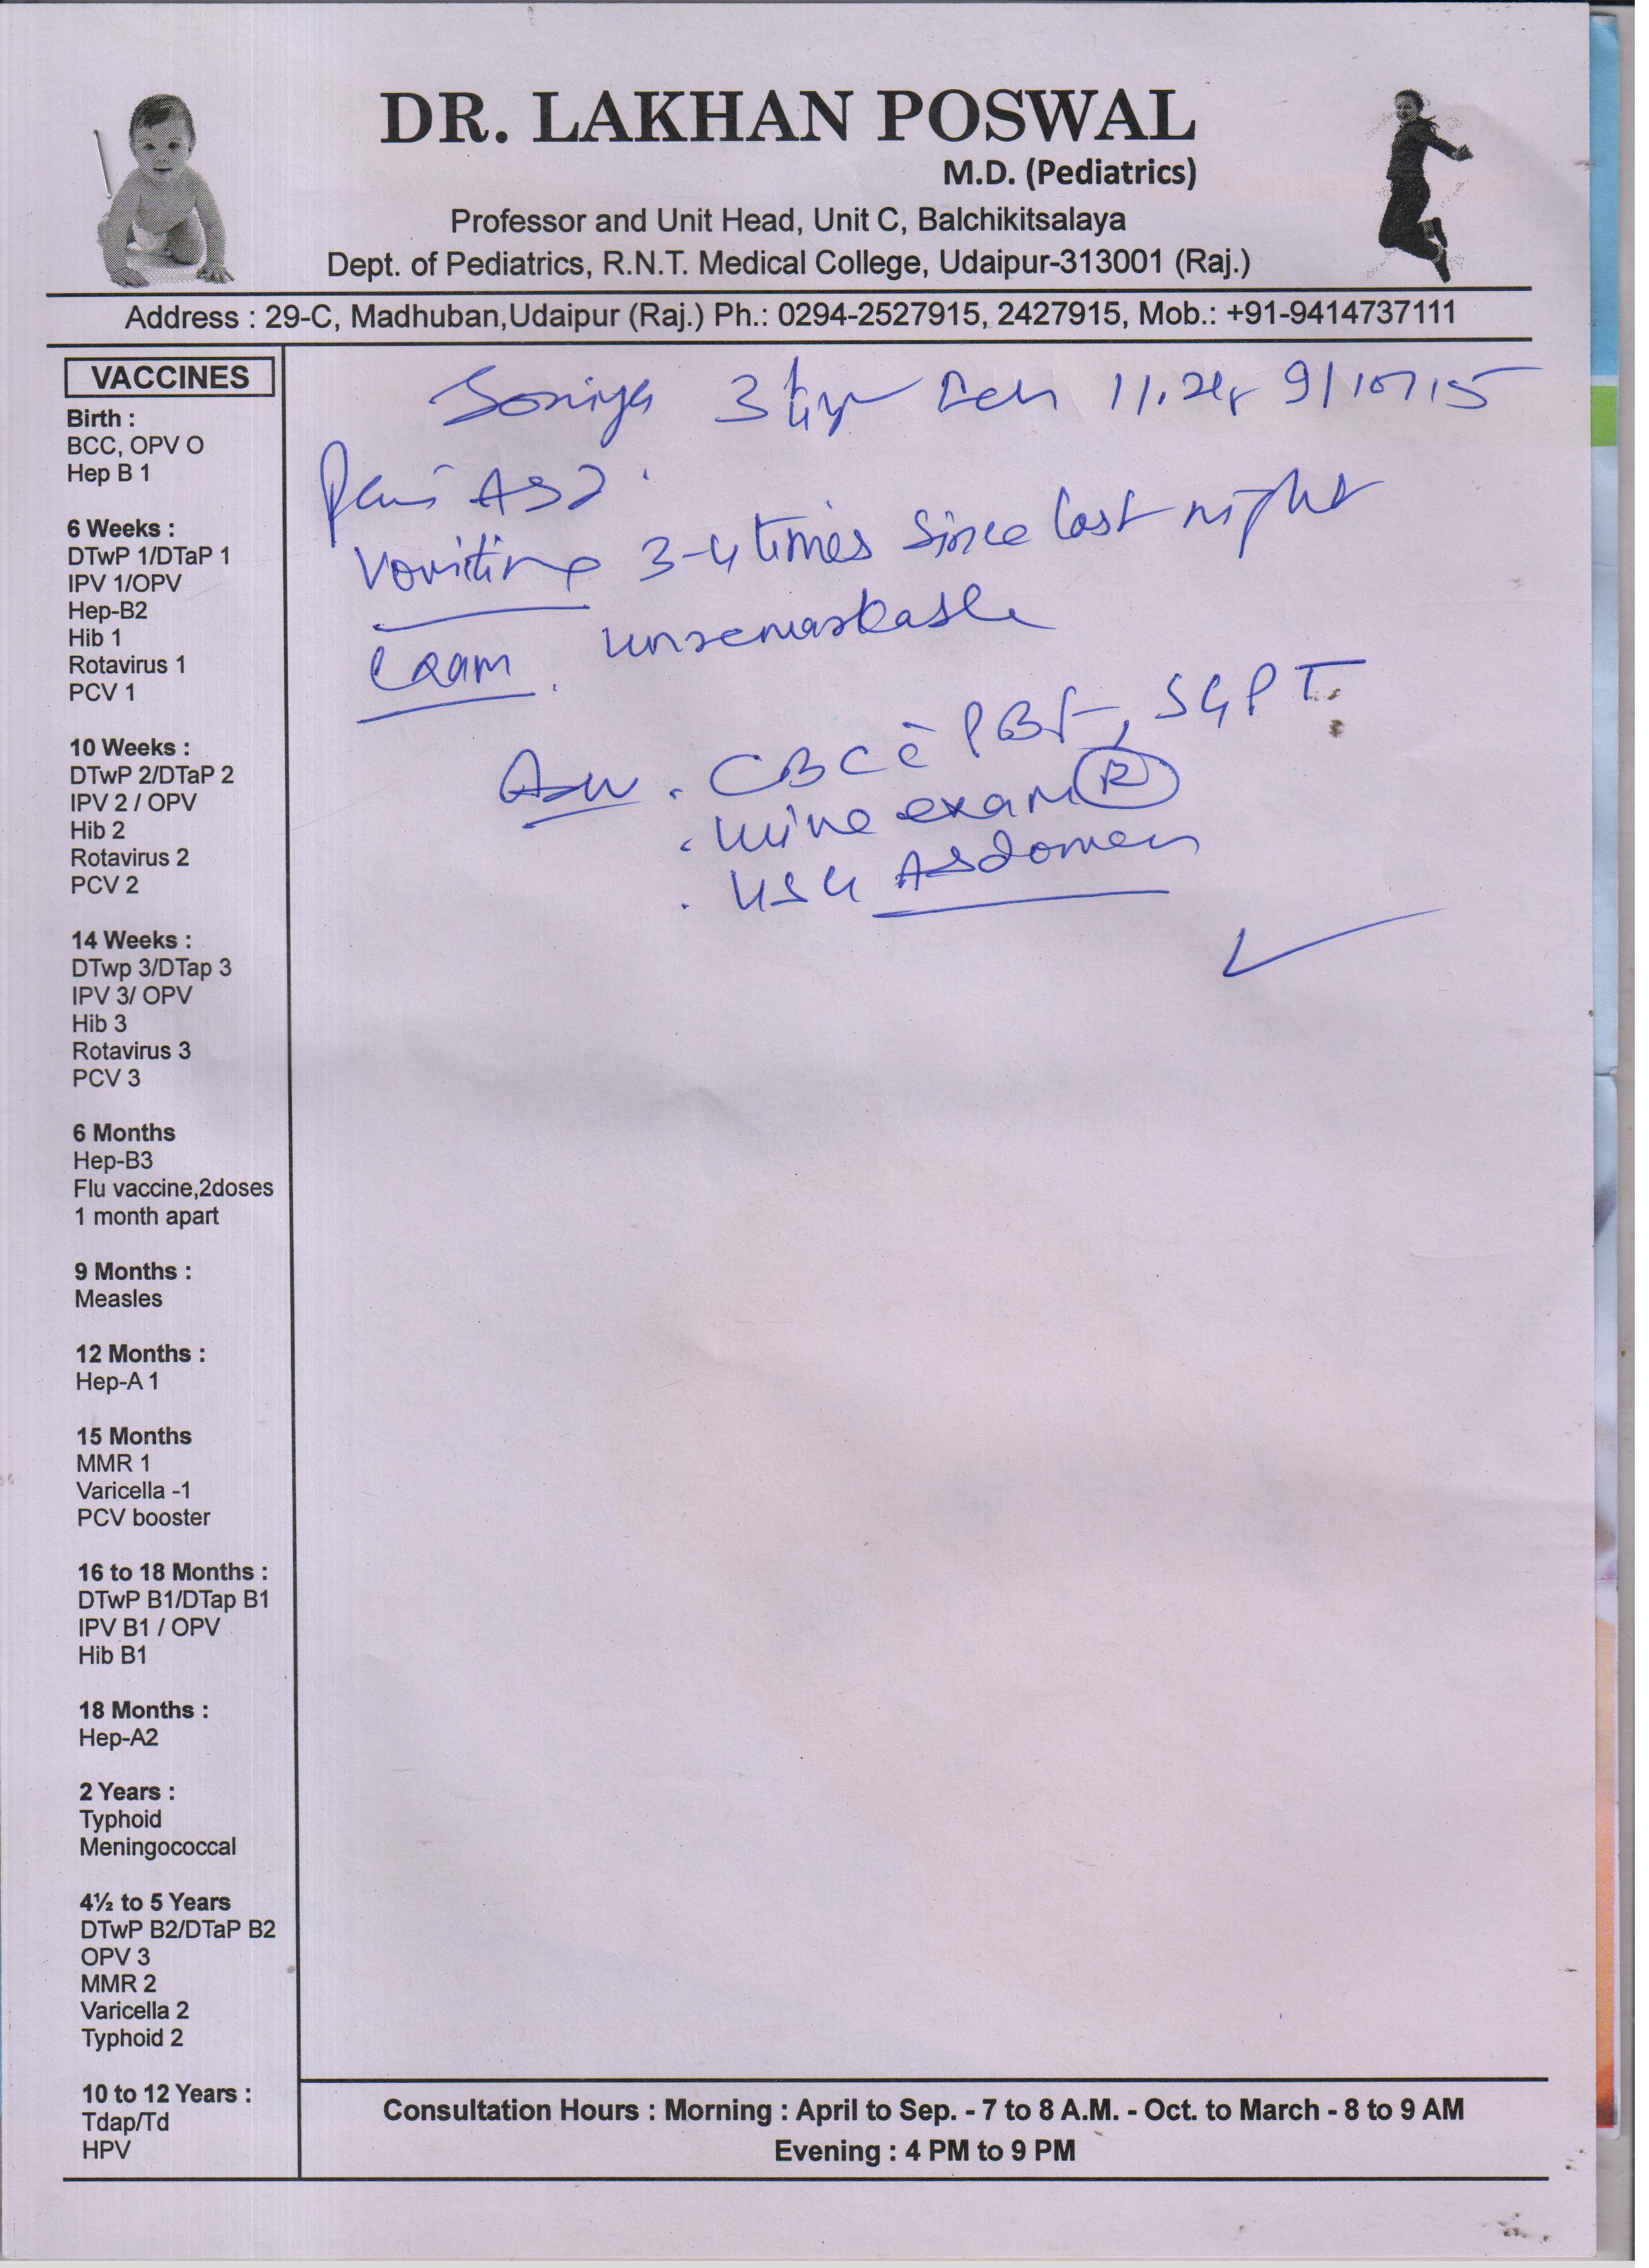 DR. LAKHAN POSWAL
M.D. (Pediatrics)
Professor and Unit Head, Unit C, Balchikitsalaya
Dept. of Pediatrics, R.N.T. Medical College, Udaipur-313001 (Raj.)
Address : 29-C, Madhuban,Udaipur (Raj.) Ph.: 0294-2527915, 2427915, Mob.: +91-9414737111
VACCINES
Birth :
BCC, OPV O
Hep B 1
6 Weeks :
DTwP 1/DTaP 1
IPV 1/OPV
Hep-B2
Hib 1
Rotavirus 1
PCV 1
10 Weeks :
DTwP 2/DTaP 2
IPV 2 / OPV
Hib 2
Rotavirus 2
PCV 2
14 Weeks :
DTwp 3/DTap 3
IPV 3/ OPV
Hib 3
Rotavirus 3
PCV 3
6 Months
Hep-B3
Flu vaccine,2doses
1 month apart
9 Months :
Measles
12 Months :
Hep-A 1
15 Months
MMR 1
Varicella -1
PCV booster
16 to 18 Months :
DTwP B1/DTap B1
IPV B1 / OPV
Hib B1
18 Months :
Hep-A2
2 Years :
Typhoid
Meningococcal
4½ to 5 Years
DTwP B2/DTaP B2
OPV 3
MMR 2
Varicella 2
Typhoid 2
10 to 12 Years :
Tdap/Td
HPV
Soniya 9/10/15
Pain Abd.
Vomiting 3-4 times since last night
Exam. unremarkable
Adv. CBC c̄ PBF, SGPT
. urine exam (R)
. USG Abdomen
Consultation Hours : Morning : April to Sep. - 7 to 8 A.M. - Oct. to March - 8 to 9 AM
Evening : 4 PM to 9 PM